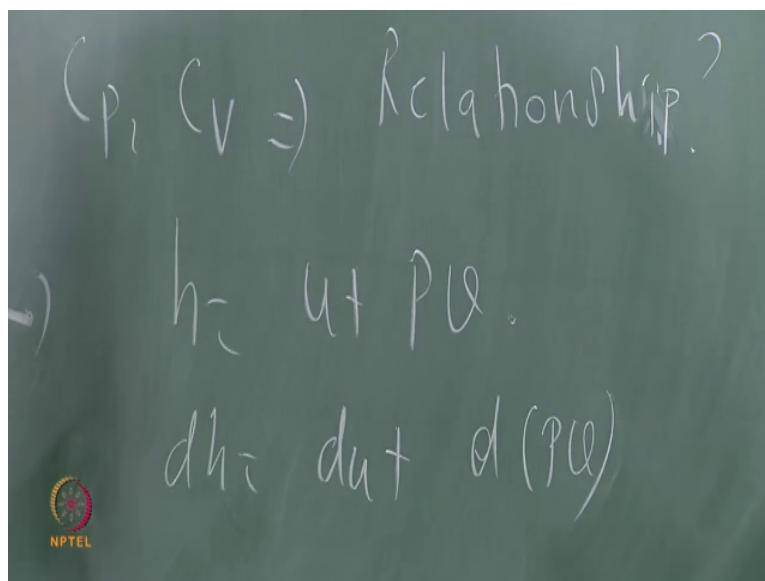 Cp, Cv => Relationship?
h = u + Pv.
dh = du + d(Pv)
NPTEL